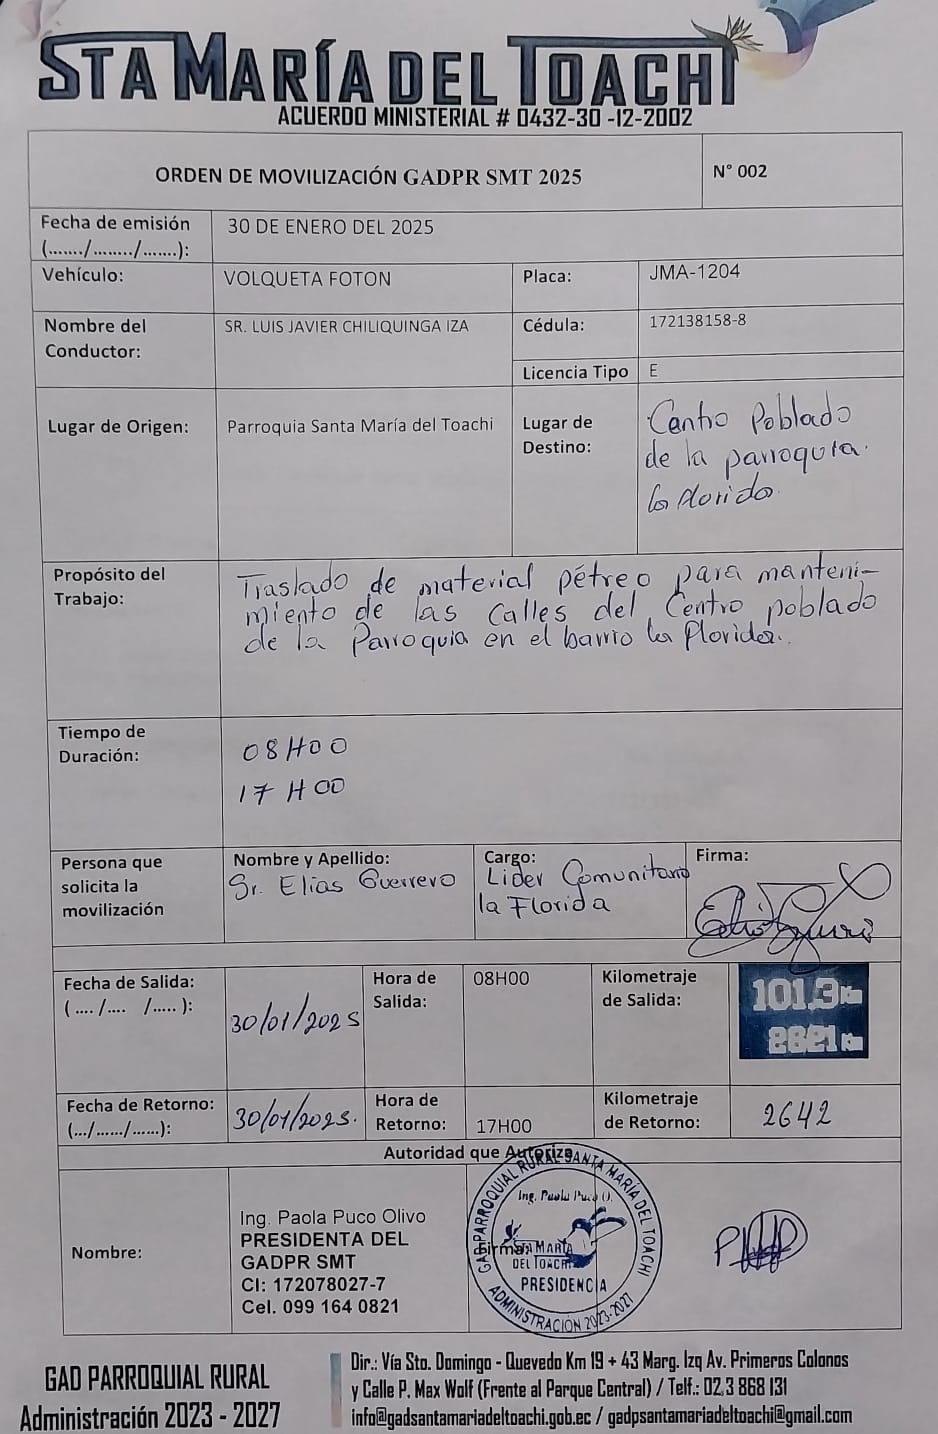 STA MARÍA DEL TOACHI
ACUERDO MINISTERIAL # 0432-30 -12-2002
ORDEN DE MOVILIZACIÓN GADPR SMT 2025
N° 002
Fecha de emisión
(......./......../.......):
30 DE ENERO DEL 2025
Vehículo:
VOLQUETA FOTON
Placa:
JMA-1204
Nombre del
Conductor:
SR. LUIS JAVIER CHILIQUINGA IZA
Cédula:
172138158-8
Licencia Tipo
E
Lugar de Origen:
Parroquia Santa María del Toachi
Lugar de
Destino:
Centro Poblado
de la parroquia.
la Florida
Propósito del
Trabajo:
Traslado de material pétreo para manteni-
miento de las Calles del Centro poblado
de la Parroquia en el barrio la Florida.
Tiempo de
Duración:
08H00
17H00
Persona que
solicita la
movilización
Nombre y Apellido:
Sr. Elias Guerrero
Cargo:
Lider Comunitario
la Florida
Firma:
Fecha de Salida:
( .... /.... /..... ):
30/01/2025
Hora de
Salida:
08H00
Kilometraje
de Salida:
101.3 Km
2621 Km
Fecha de Retorno:
(.../....../......):
30/01/2025.
Hora de
Retorno:
17H00
Kilometraje
de Retorno:
2642
Autoridad que Autoriza
Nombre:
Ing. Paola Puco Olivo
PRESIDENTA DEL
GADPR SMT
CI: 172078027-7
Cel. 099 164 0821
Firma:
GAD PARROQUIAL RURAL SANTA MARÍA DEL TOACHI
Ing. Paola Puco O.
STA MARÍA
DEL TOACHI
PRESIDENCIA
ADMINISTRACIÓN 2023-2027
GAD PARROQUIAL RURAL
Administración 2023 - 2027
Dir.: Vía Sto. Domingo - Quevedo Km 19 + 43 Marg. Izq Av. Primeros Colonos
y Calle P. Max Wolf (Frente al Parque Central) / Telf.: 02 3 868 131
info@gadsantamariadeltoachi.gob.ec / gadpsantamariadeltoachi@gmail.com